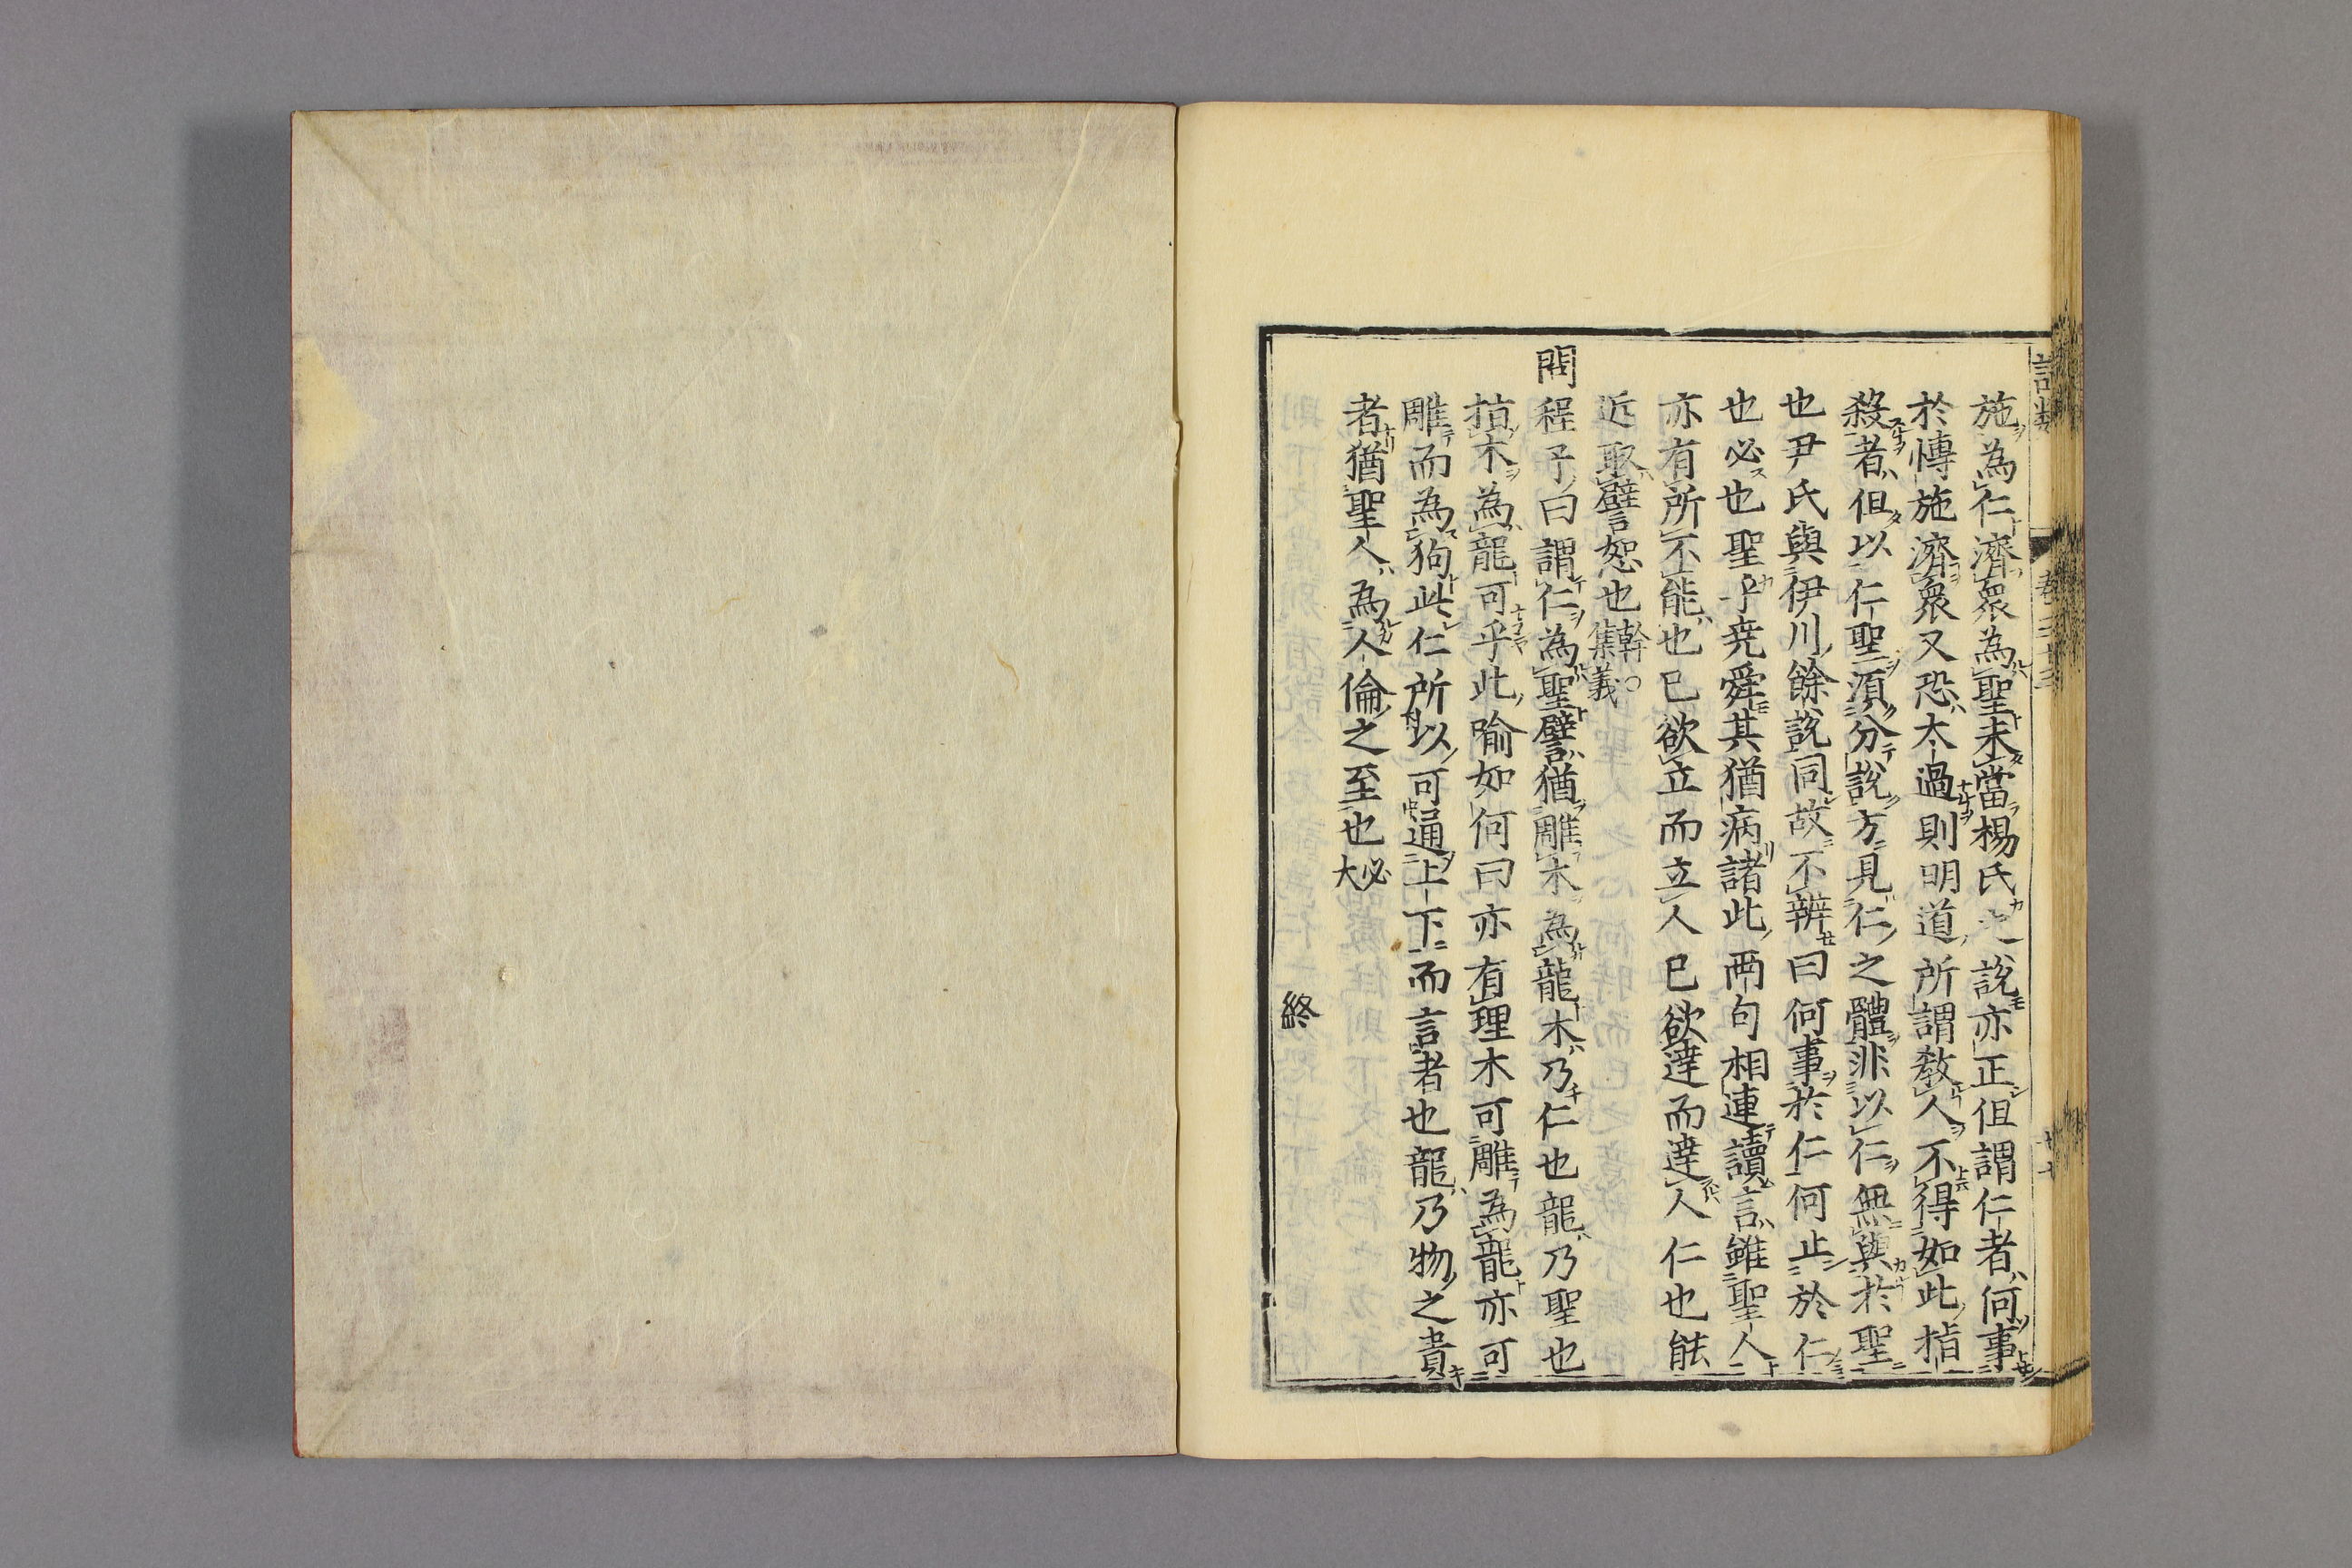 施為仁濟衆為聖未當楊氏之說亦正但謂仁者何事
於博施濟衆又恐太過則明道所謂敎人不得如此指
殺者但以仁聖須分說方見仁之體非以仁無與於聖
也尹氏與伊川餘說同故不辨曰何事於仁何止於仁
也必也聖乎尭舜其猶病諸此兩句相連讀言雖聖人
亦有所不能也己欲立而立人己欲達而達人仁也能
近取譬恕也幹〇集義
問程子曰謂仁為聖譬猶雕木為龍木乃仁也龍乃聖也
指木為龍可乎此喻如何曰亦有理木可雕為龍亦可
雕而為狗此仁所以可通上下而言者也龍乃物之貴
者猶聖人為人倫之至也必大
終